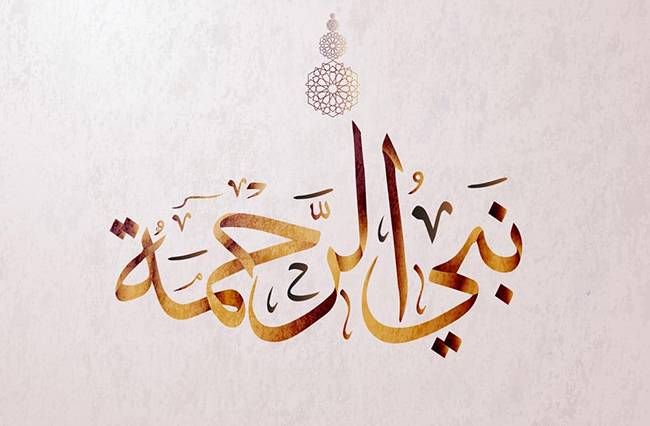 نَبِيُّ الرَّحْمَةِ